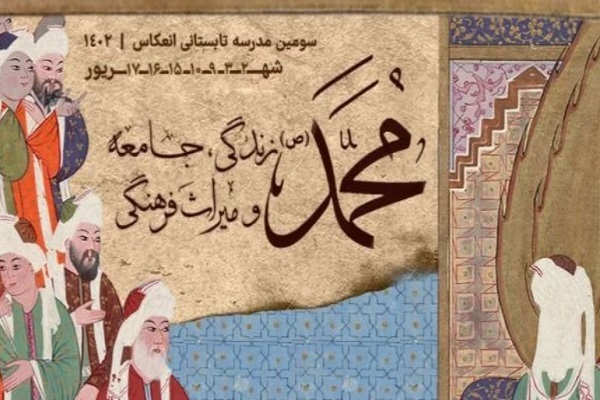 سومین مدرسه تابستانی انعکاس | ۱۴۰۲
شهـ۲ـ۳ـ۹ـ۱۰ـ۱۵ـ۱۶ـ۱۷ـریور
محمد (ص) زندگی، جامعه
و میراث فرهنگی